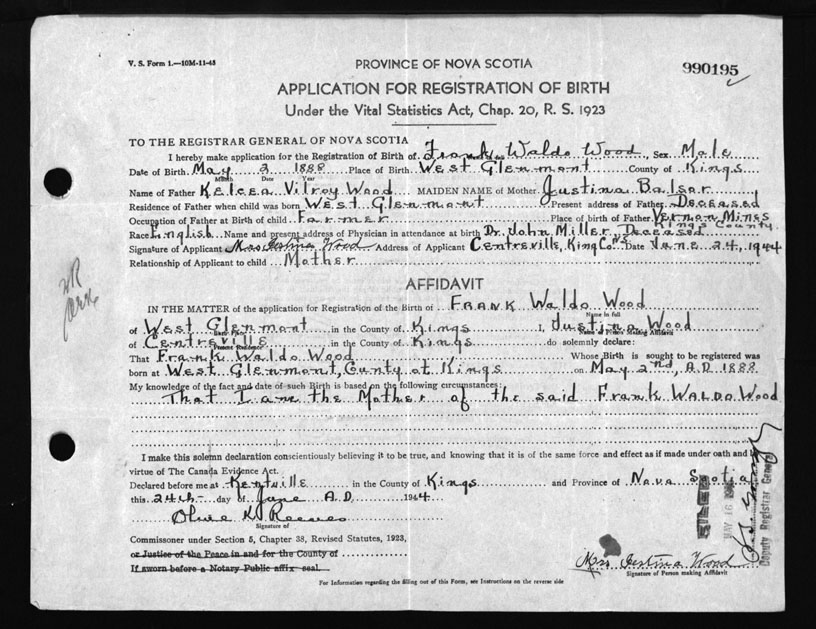 V. S. Form 1.—10M-11-43
PROVINCE OF NOVA SCOTIA
990195
APPLICATION FOR REGISTRATION OF BIRTH
Under the Vital Statistics Act, Chap. 20, R. S. 1923
TO THE REGISTRAR GENERAL OF NOVA SCOTIA
I hereby make application for the Registration of Birth of Frank Waldo Wood, Sex Male
Date of Birth May 2 1888 Place of Birth West Glenmont County of Kings
Month Date Year
Name of Father Kelcea Vilroy Wood MAIDEN NAME of Mother Justina Balsor
Residence of Father when child was born West Glenmont Present address of Father Deceased
Occupation of Father at Birth of child Farmer Place of birth of Father Vernon Mines
Kings County
Race English Name and present address of Physician in attendance at birth Dr. John Miller, Deceased
Signature of Applicant Mrs Justina Wood Address of Applicant Centreville, King Co. N.S. Date June 24, 1944
Relationship of Applicant to child Mother
AFFIDAVIT
IN THE MATTER of the application for Registration of the Birth of FRANK Waldo Wood
Name in full
of West Glenmont in the County of Kings I, Justina Wood
Birth Place Name of Person Making Affidavit
of Centreville in the County of Kings do solemnly declare:
Present Residence
That Frank Waldo Wood Whose Birth is sought to be registered was
born at West Glenmont, County of Kings on May 2nd, A.D 1888
My knowledge of the fact and date of such Birth is based on the following circumstances:
That I am the Mother of the said Frank WALDO Wood
I make this solemn declaration conscientiously believing it to be true, and knowing that it is of the same force and effect as if made under oath and by
virtue of The Canada Evidence Act.
Declared before me at Kentville in the County of Kings and Province of Nova Scotia
this 24th day of June A.D 1944
Olive K. Reeves
Signature of
Commissioner under Section 5, Chapter 38, Revised Statutes, 1923,
or Justice of the Peace in and for the County of
If sworn before a Notary Public affix seal.
Mrs Justina Wood
Signature of Person making Affidavit
For Information regarding the filling out of this Form, see Instructions on the reverse side
FILED
MAY 16
Deputy Registrar General